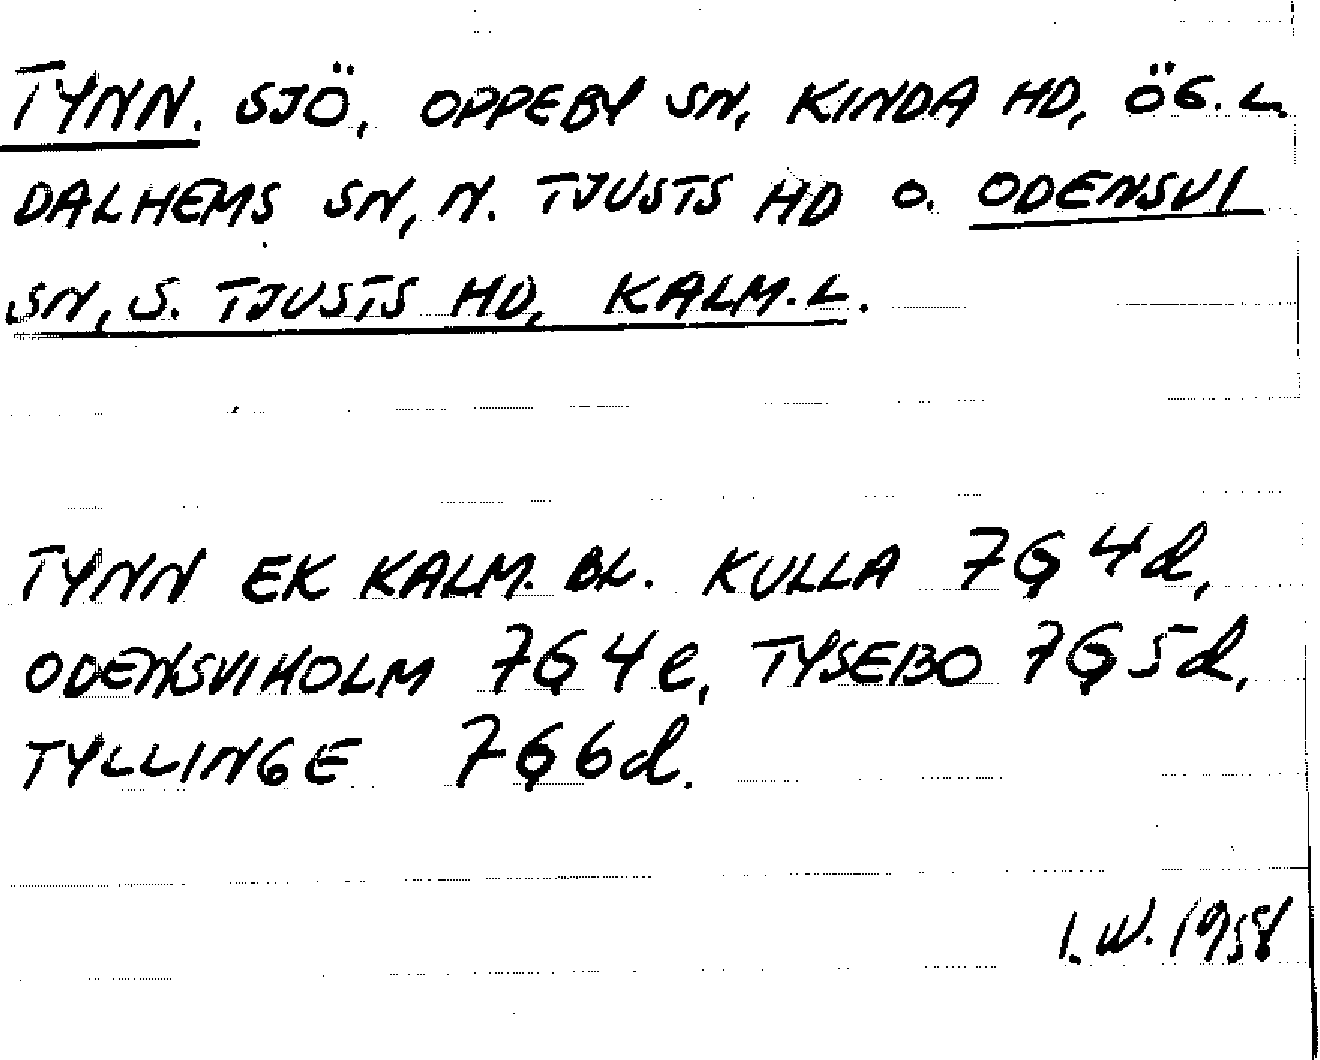 TYNN. SJÖ, OPPEBY SN, KINDA HD, ÖG. L.
DALHEMS SN, N. TJUSTS HD O. ODENSVI
SN, S. TJUSTS HD, KALM. L.
TYNN EK KALM. BL. KULLA 7G 4d,
ODENSVIHOLM 7G 4e, TYSEBO 7G 5d,
TYLLINGE 7G 6d.
I. W. 1958